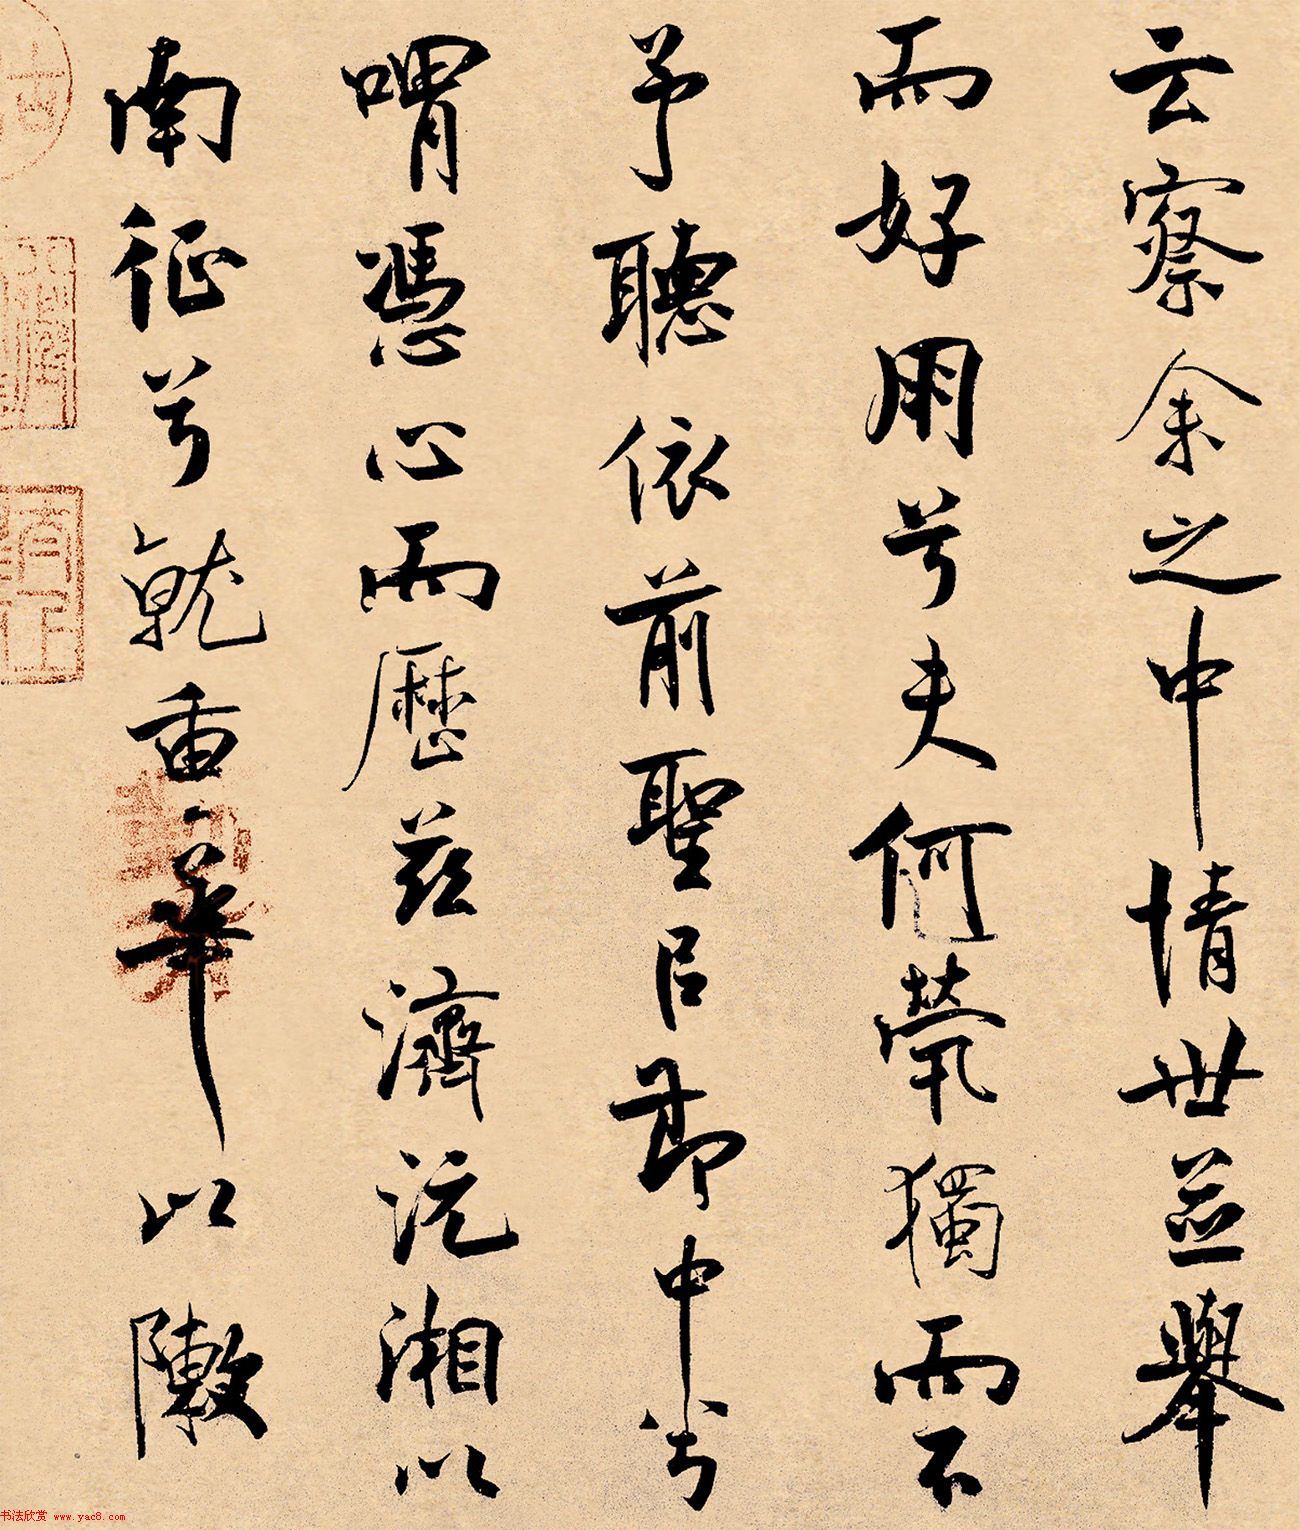 云察余之中情世並舉
而好朋兮夫何煢獨而不
予聽依前聖㠯節中兮
喟憑心而歷茲濟沅湘以
南征兮就重華以敶
书法欣赏 www.yac8.com